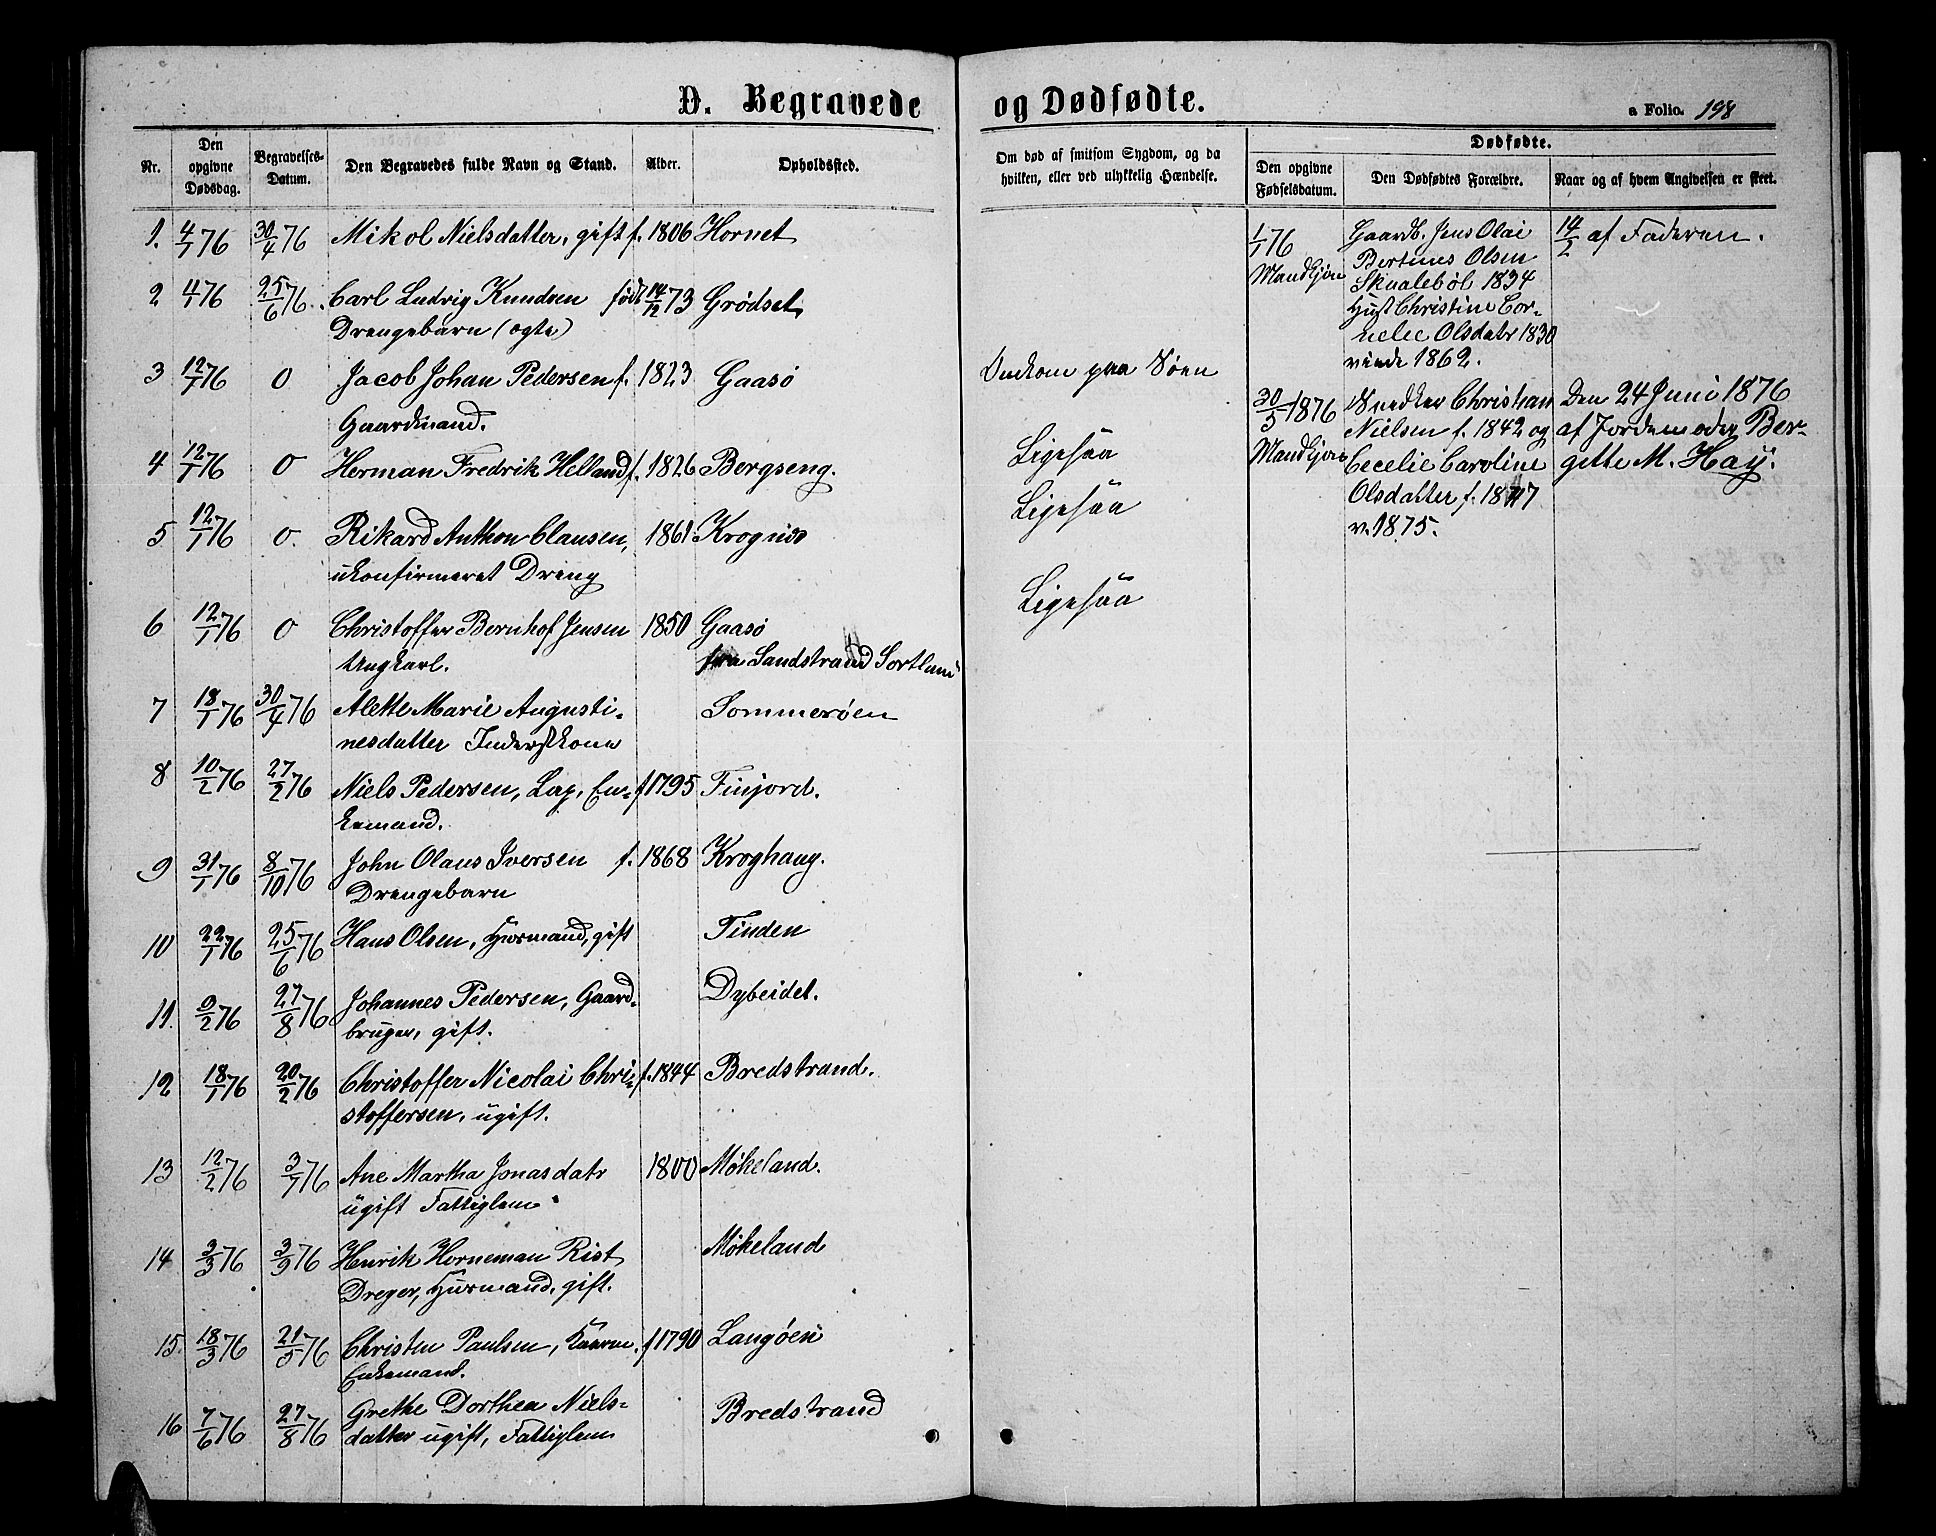 D. Begravede og Dødfødte.
a Folio. 198
Nr. Den opgivne Dødsdag. Begravelses-Datum. Den Begravedes fulde Navn og Stand. Alder. Opholdssted.
Om død af smitsom Sygdom, og da hvilken, eller ved ulykkelig Hændelse.
Dødfødte.
Den opgivne Fødselsdatum. Den Dødfødtes Forældre. Naar og af hvem Angivelsen er skeet.
1. 4/1 76 30/4 76 Mikol Nielsdatter, gift f. 1806 Hornet
2 4/1 76 25/6 76. Carl Ludvig Knudsen født 14/12 73 Grödset
Drengebarn (ægte)
3 12/1 76 0 Jacob Johan Pedersen f. 1823 Gaasö Omkom paa Söen
Gaardmand.
4 12/1 76 0 Herman Fredrik Helland f. 1826 Bergseng. Ligesaa
5 12/1 76 0. Rikard Anthon Clausen, 1861 Krognæs Ligesaa
ukonfirmeret Dreng
6 12/1 76 0 Christoffer Bernhof Jensen 1850 Gaasö Ligesaa
Ungkarl. fra Sandstrand Sortland
7 18/1 76 30/4 76 Alette Marie Augusti-
nesdatter Inderstkone Sommeröen
8 10/2 76 27/2 76 Niels Pedersen, Lap, En- f 1795 Finjord.
kemand.
9 31/1 76 8/10 76 John Olaus Iversen f. 1868 Kroghaug.
Drengebarn
10 22/1 76 25/6 76 Hans Olsen, Husmand, gift Tinden
11. 9/2 76 27/8 76 Johannes Pedersen, Gaard- Dybeidet.
bruger, gift.
12 18/1 76 20/2 76 Christoffer Nicolai Chri- f. 1844 Bredstrand.
stoffersen, ugift.
13 12/2 76 3/7 76 Ane Martha Jonasdatr 1800 Møkeland.
ugift Fattiglem
14 3/3 76 3/9 76 Henrik Horneman Rist Møkeland
Dreyer, Husmand, gift.
15. 18/3 76 21/5 76 Christen Paulsen, f 1790 Langöen
Enkemand.
16 7/6 76 27/8 76 Grethe Dorthea Niels- Bredstrand
datter ugift, Fattiglem
1/1 76 Gaardb. Jens Olai 14/2 af Faderen.
Mandkjön Bertines Olsen
Skualebøl 1834
Hust Christine Cor-
nelie Olsdatr 1830
viede 1862.
30/5 1876 Snedker Christian Den 24 Juni 1876
Nielsen f. 1842 og af Jordemoder Ber-
Mandkjön Cecelie Caroline gitte M. Hay.
Olsdatter f. 1847
v. 1875.